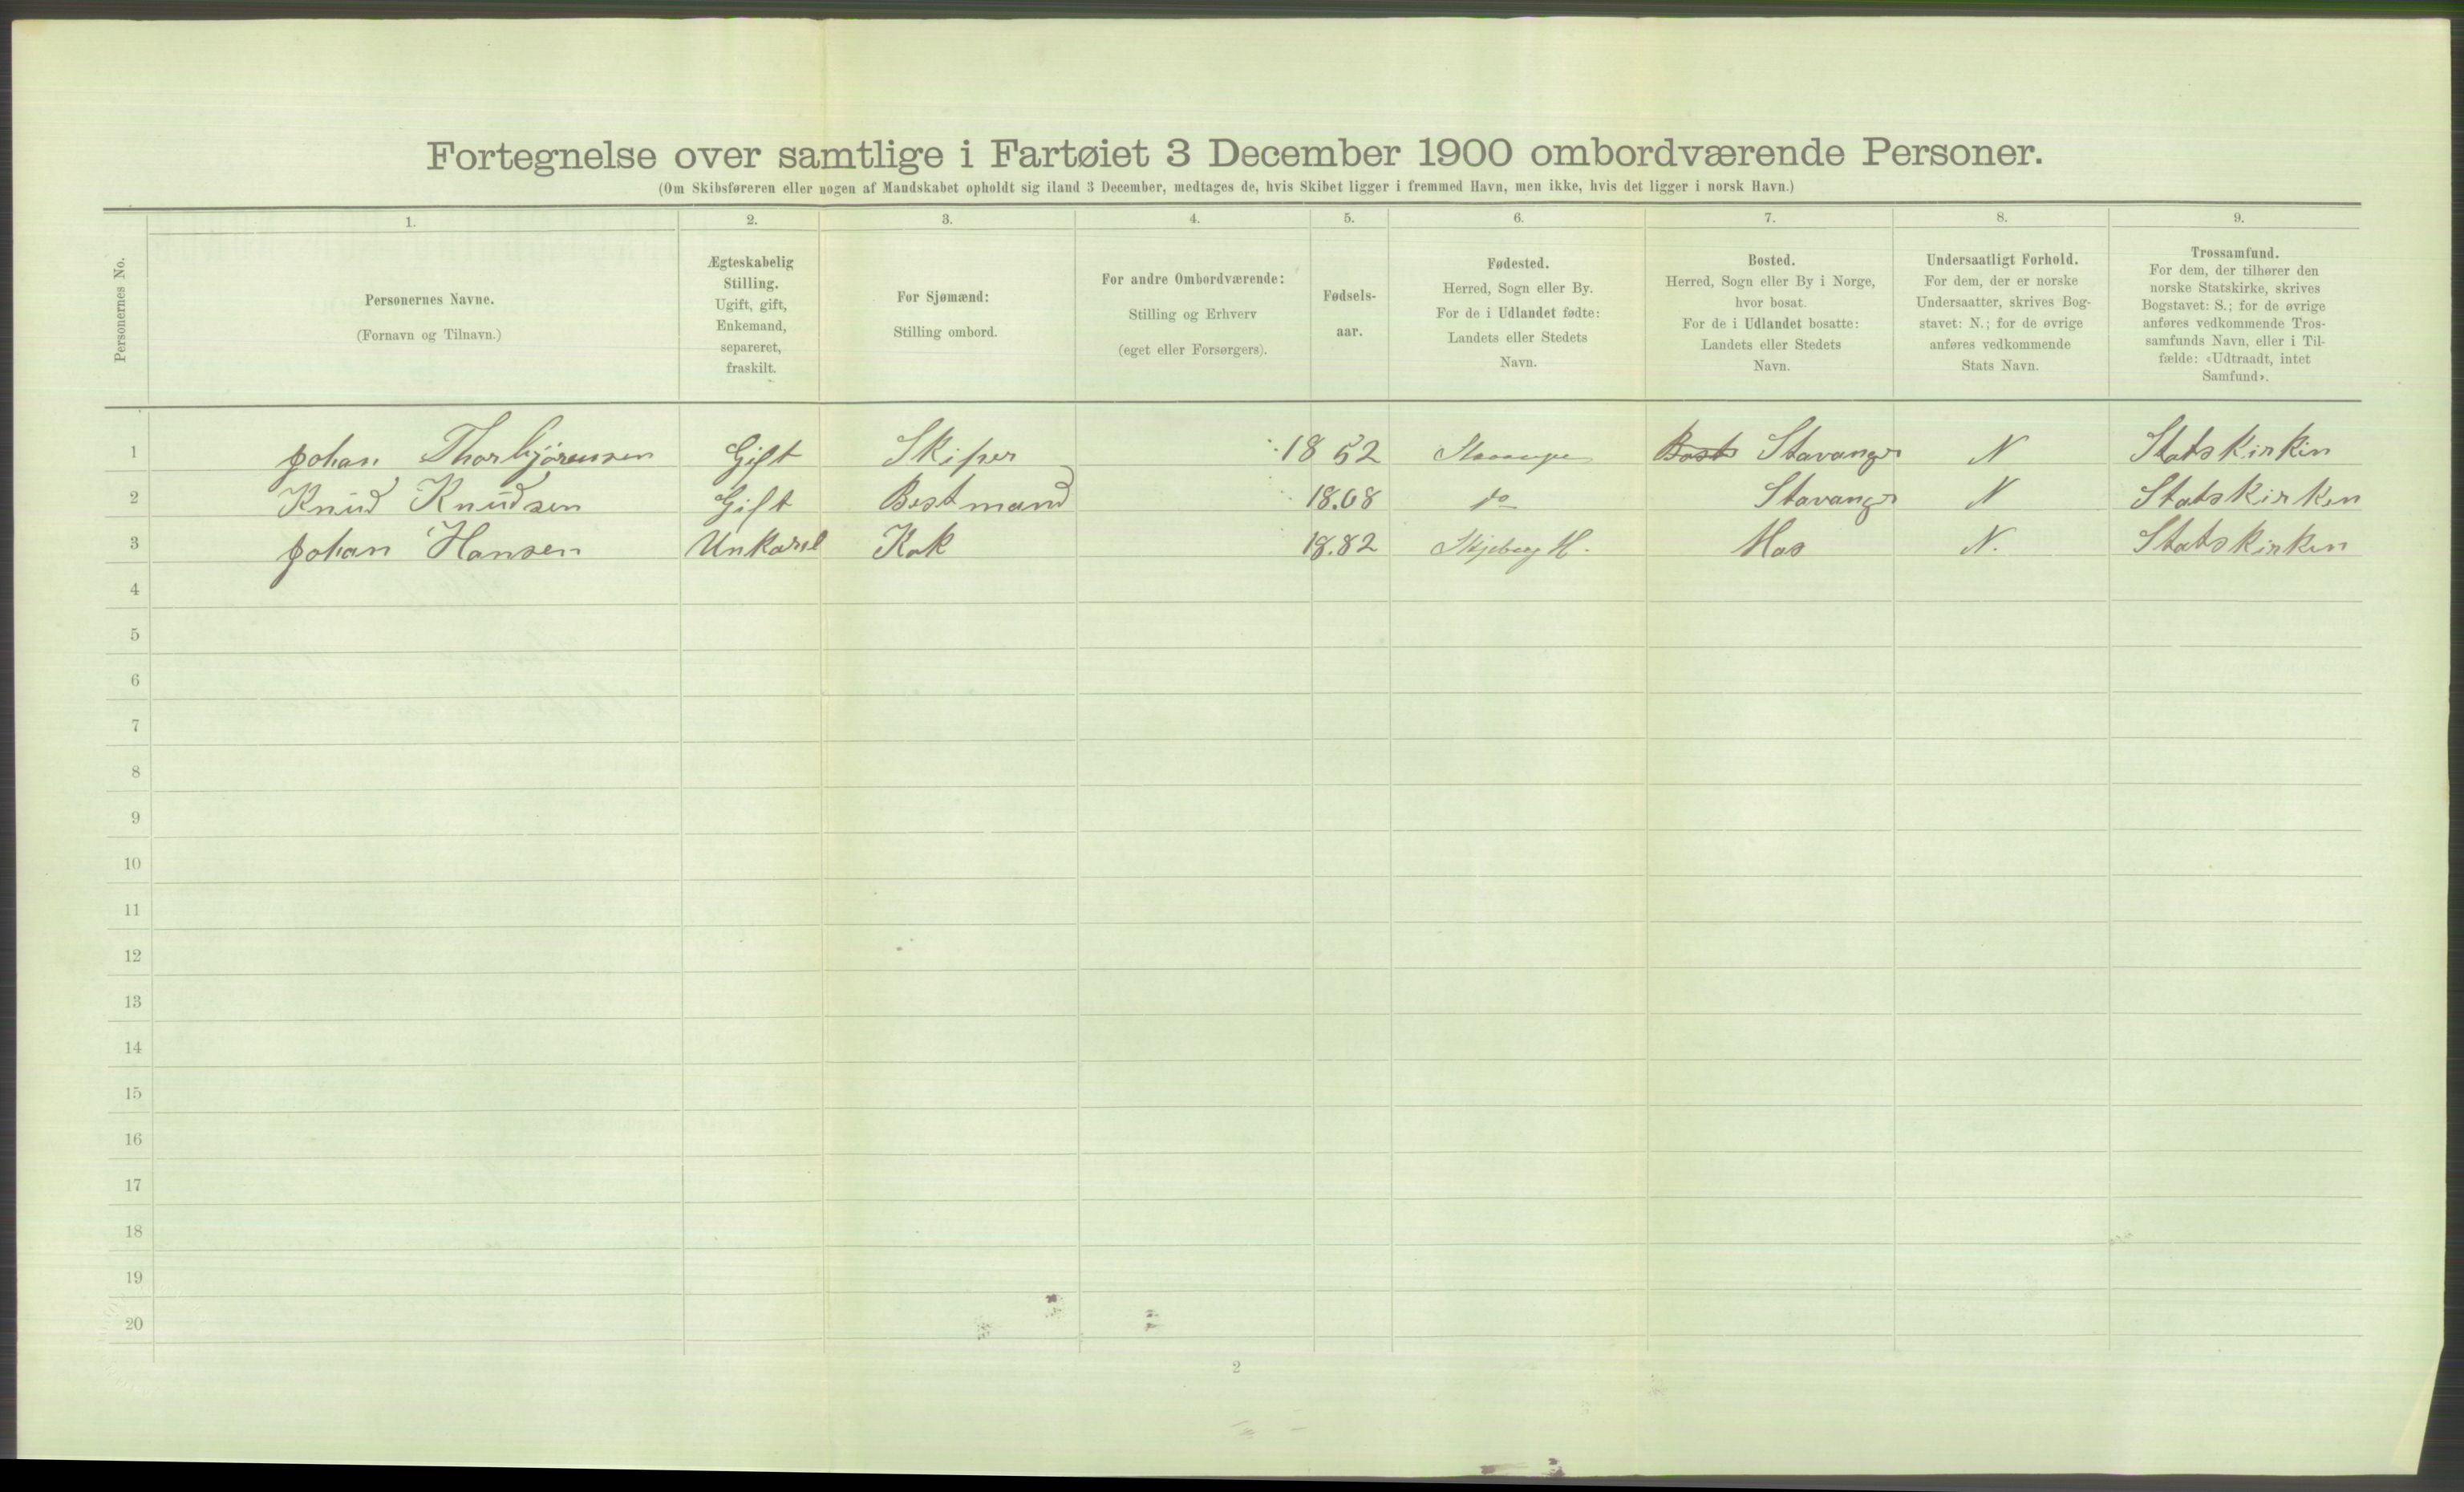 Fortegnelse over samtlige i Fartøiet 3 December 1900 ombordværende Personer.
(Om Skibsføreren eller nogen af Mandskabet opholdt sig iland 3 December, medtages de, hvis Skibet ligger i fremmed Havn, men ikke, hvis det ligger i norsk Havn.)
Personernes No.
1.
Personernes Navne.
(Fornavn og Tilnavn.)
2.
Ægteskabelig
Stilling.
Ugift, gift,
Enkemand,
separeret,
fraskilt.
3.
For Sjømænd:
Stilling ombord.
4.
For andre Ombordværende:
Stilling og Erhverv
(eget eller Forsørgers).
5.
Fødsels-
aar.
6.
Fødested.
Herred, Sogn eller By.
For de i Udlandet fødte:
Landets eller Stedets
Navn.
7.
Bosted.
Herred, Sogn eller By i Norge,
hvor bosat.
For de i Udlandet bosatte:
Landets eller Stedets
Navn.
8.
Undersaatligt Forhold.
For dem, der er norske
Undersaatter, skrives Bog-
stavet: N.; for de øvrige
anføres vedkommende
Stats Navn.
9.
Trossamfund.
For dem, der tilhører den
norske Statskirke, skrives
Bogstavet: S.; for de øvrige
anføres vedkommende Tros-
samfunds Navn, eller i Til-
fælde: «Udtraadt, intet
Samfund».
1 Johan Thorbjörensen Gift Skiper 1852 Stavanger Stavanger N Statskirken
2 Knud Knudsen Gift Bestmand 18.68 do Stavanger N Statskirken
3 Johan Hansen Unkarel Kok 18.82 Skjeberg H. Mos N. Statskirken
4
5
6
7
8
9
10
11
12
13
14
15
16
17
18
19
20
2